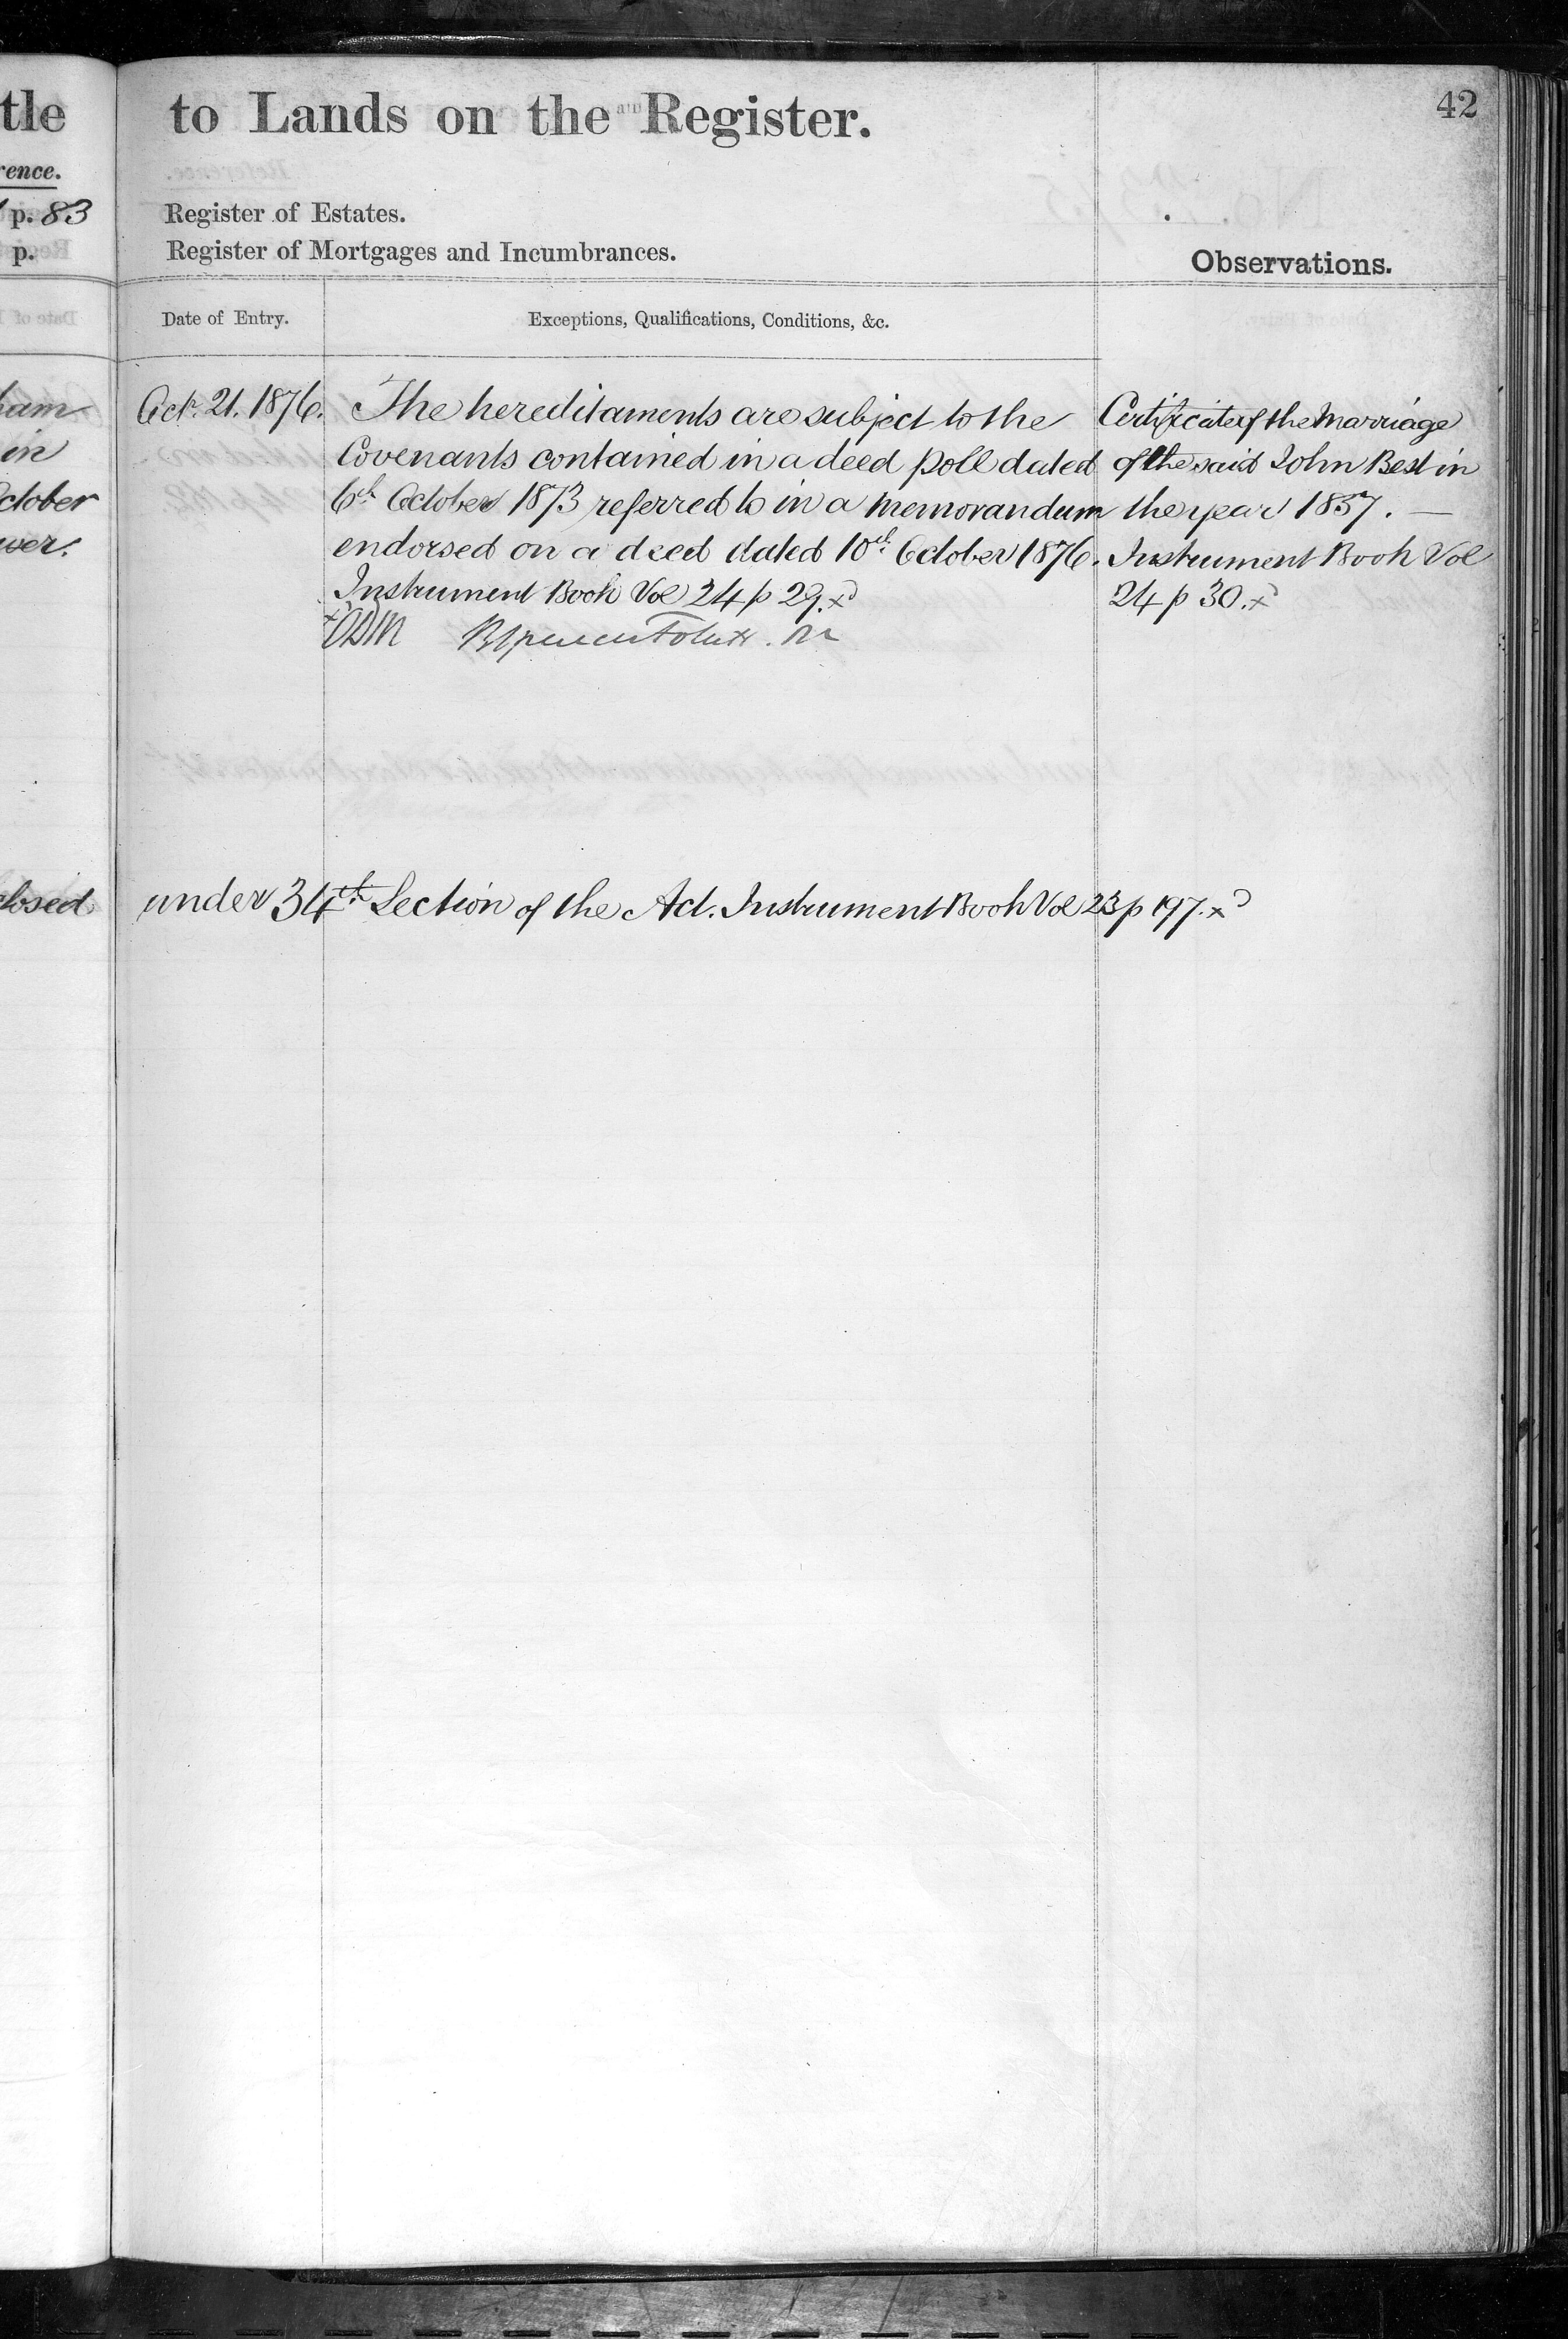 tle
rence.
p. 83
p.
ham
in
October
wer.
closed
to Lands on the Register.
42
Register of Estates.
Register of Mortgages and Incumbrances.
Observations.
Date of Entry.
Exceptions, Qualifications, Conditions, &c.
Oct. 21. 1876.
The hereditaments are subject to the
Covenants contained in a deed poll dated
6th October 1873 referred to in a memorandum
endorsed on a deed dated 10th October 1876.
Instrument Book Vol 24 p 29. x
Certificate of the Marriage
of the said John Best in
the year 1857. —
Instrument Book Vol
24 p 30. x
under 34th Section of the Act. Instrument Book Vol 23 p 197. x